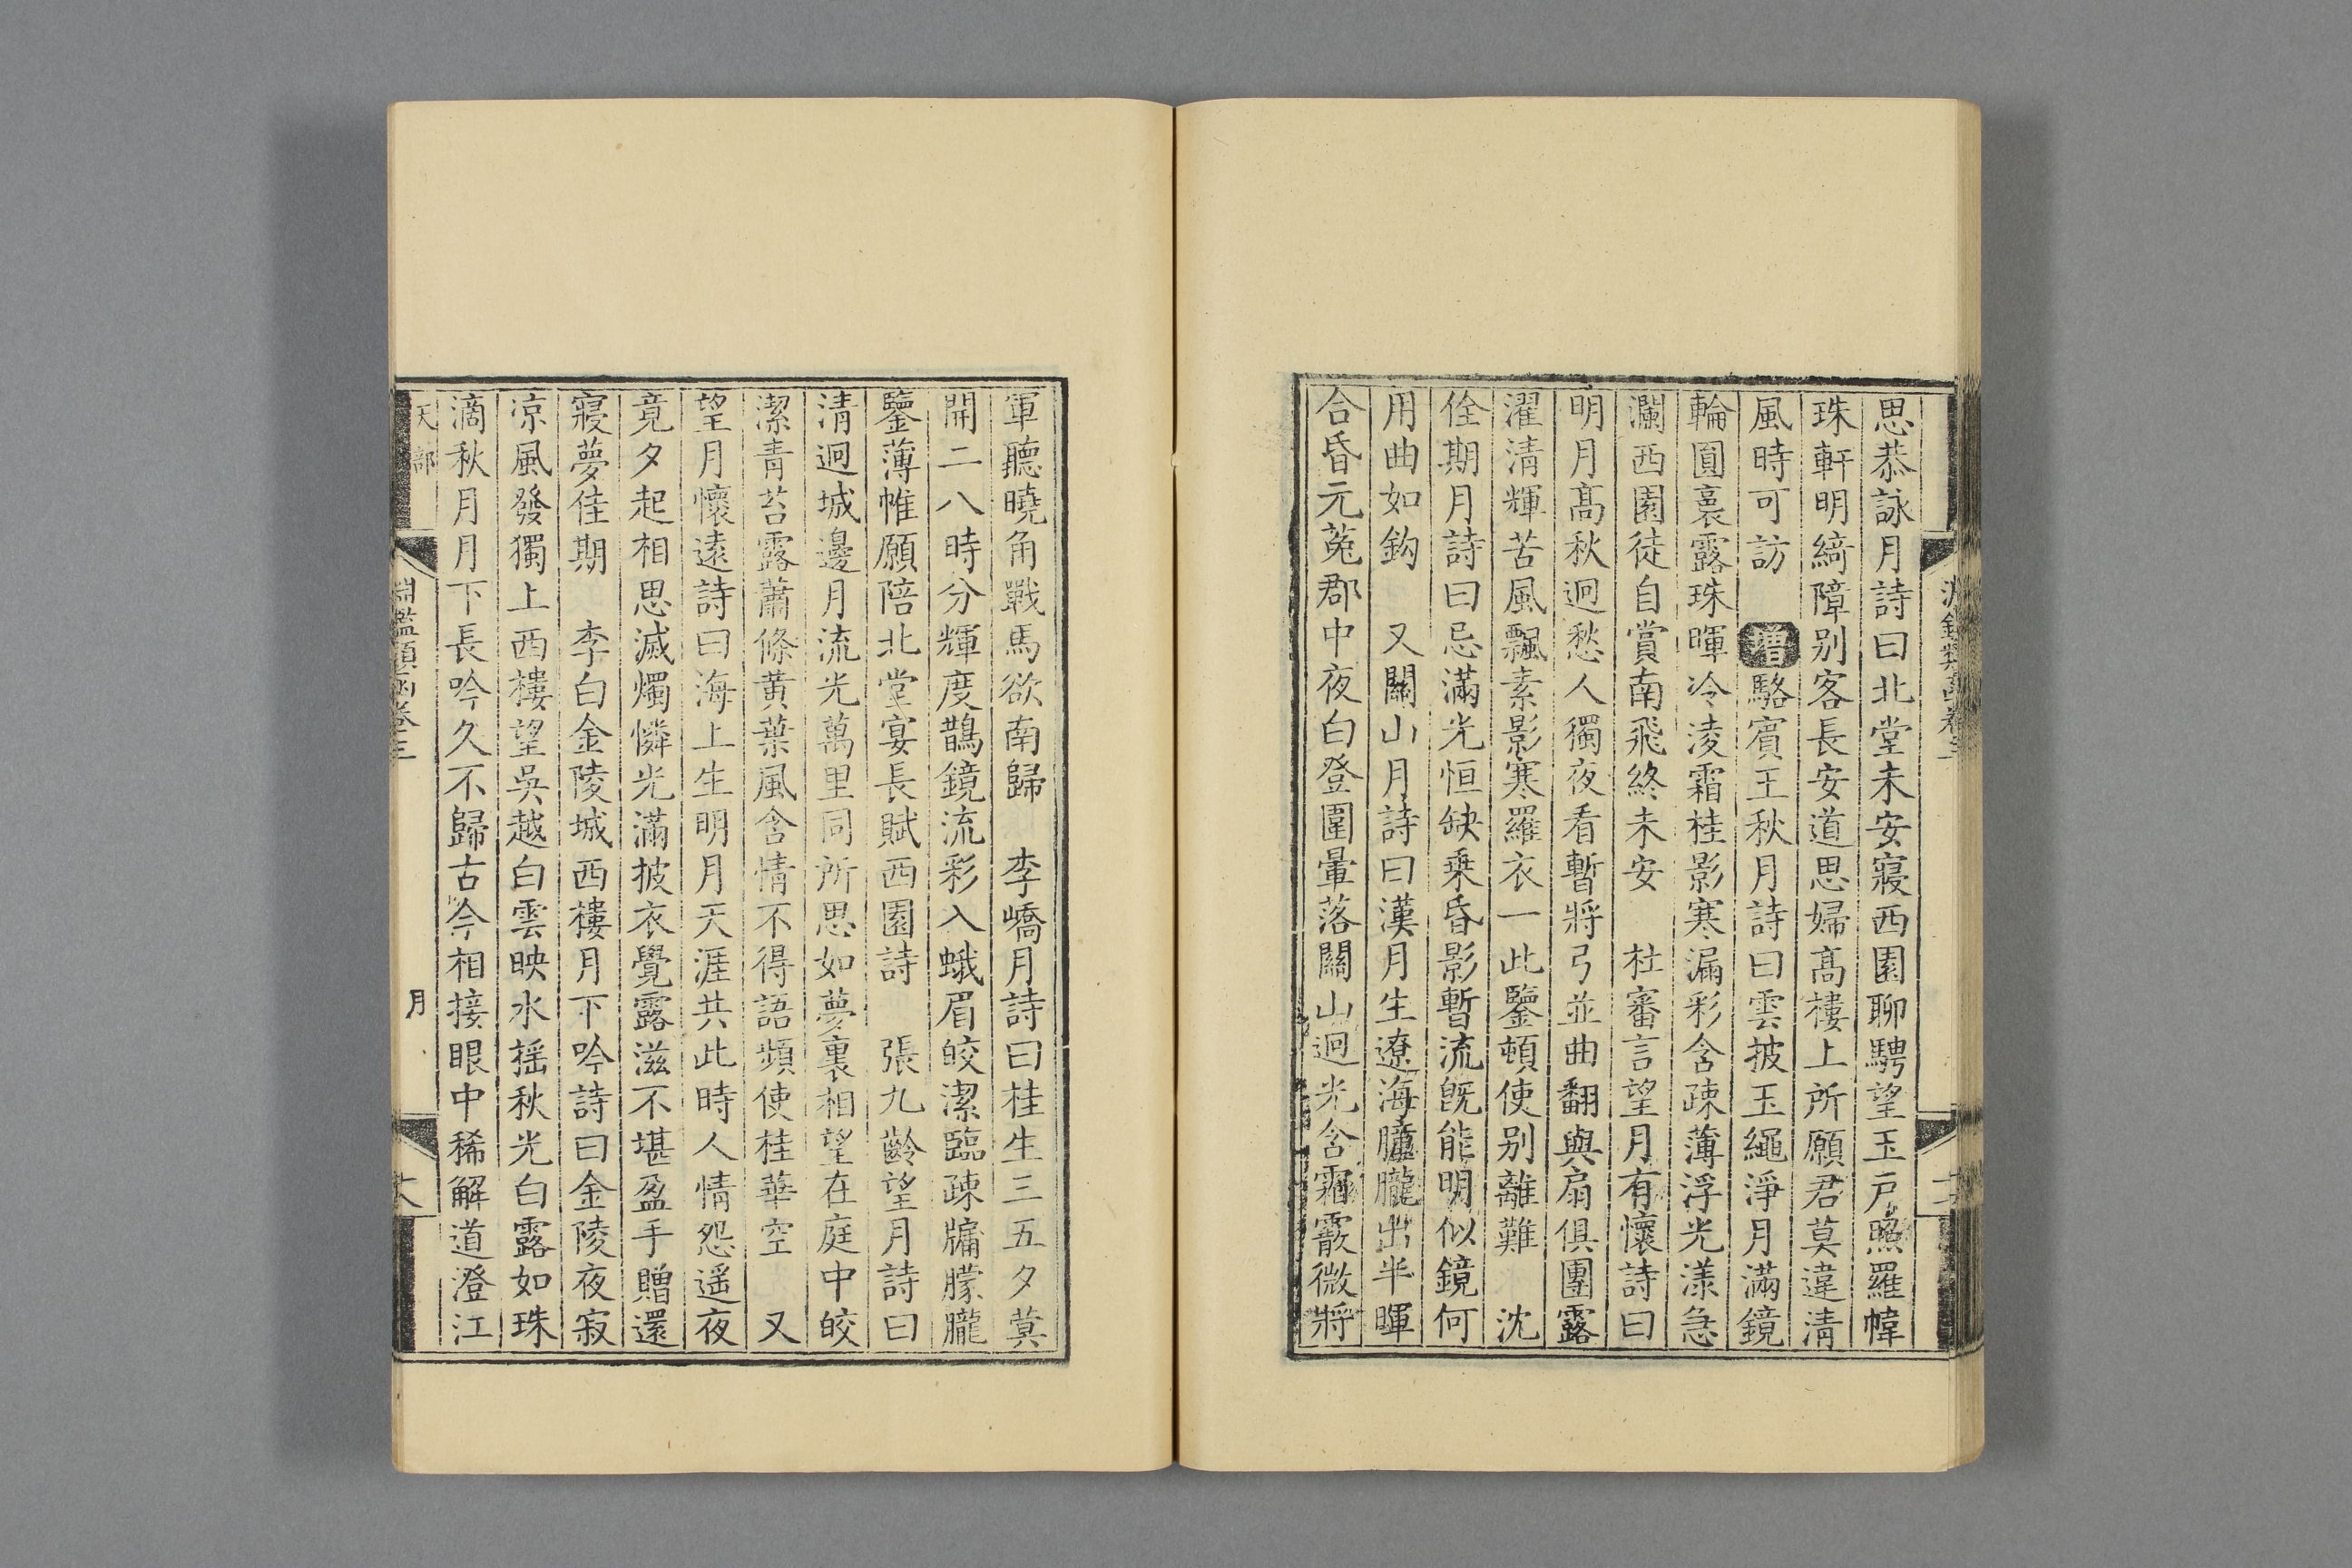 思恭詠月詩曰北堂未安寢西園聊騁望玉戸照羅幃
珠軒明綺障别客長安道思婦髙樓上所願君莫違清
風時可訪　增駱賓王秋月詩曰雲披玉繩淨月滿鏡
輪圓裛露珠暉冷淩霜桂影寒漏彩含疎薄浮光漾急
瀾西園徒自賞南飛終未安　杜審言望月有懷詩曰
明月髙秋迥愁人獨夜看暫將弓並曲翻與扇俱團露
濯清輝苦風飄素影寒羅衣一此鑒頓使别離難　沈
佺期月詩曰忌滿光恒缺乗昏影暫流旣能明似鏡何
用曲如鈎　又關山月詩曰漢月生遼海朣朧出半暉
合昏元菟郡中夜白登圍暈落關山迥光含霜霰微將
軍聽曉角戰馬欲南歸　李嶠月詩曰桂生三五夕蓂
開二八時分輝度鵲鏡流彩入蛾眉皎潔臨疎牖朦朧
鑒薄帷願陪北堂宴長賦西園詩　張九齡望月詩曰
清迥城邊月流光萬里同所思如夢裏相望在庭中皎
潔青苔露蕭條黃葉風含情不得語頻使桂華空　又
望月懷遠詩曰海上生明月天涯共此時人情怨遥夜
竟夕起相思滅燭憐光滿披衣覺露滋不堪盈手贈還
寢夢佳期　李白金陵城西樓月下吟詩曰金陵夜寂
凉風發獨上西樓望吳越白雲映水摇秋光白露如珠
滴秋月月下長吟久不歸古今相接眼中稀解道澄江
天部
淵鑑類函卷三
月